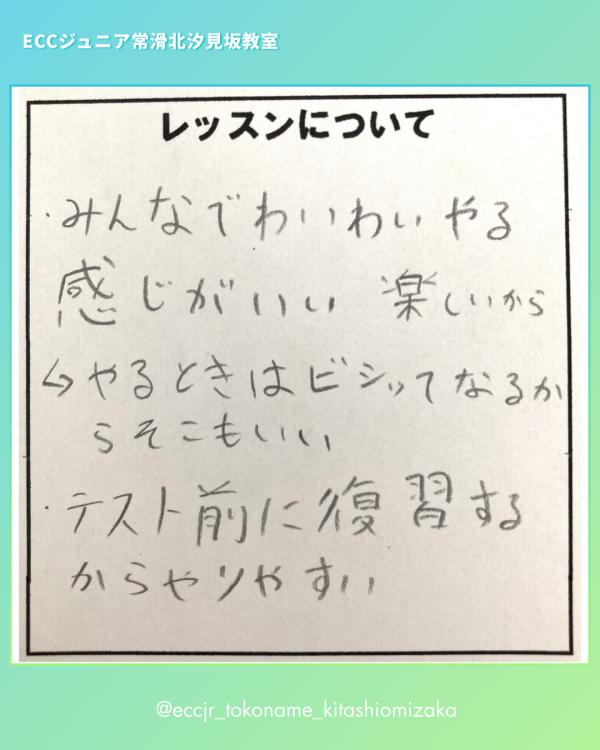 ECCジュニア常滑北汐見坂教室
レッスンについて
・みんなでわいわいやる
感じがいい 楽しいから
↳やるときはビシッてなるか
らそこもいい
・テスト前に復習する
からやりやすい
@eccjr_tokoname_kitashiomizaka